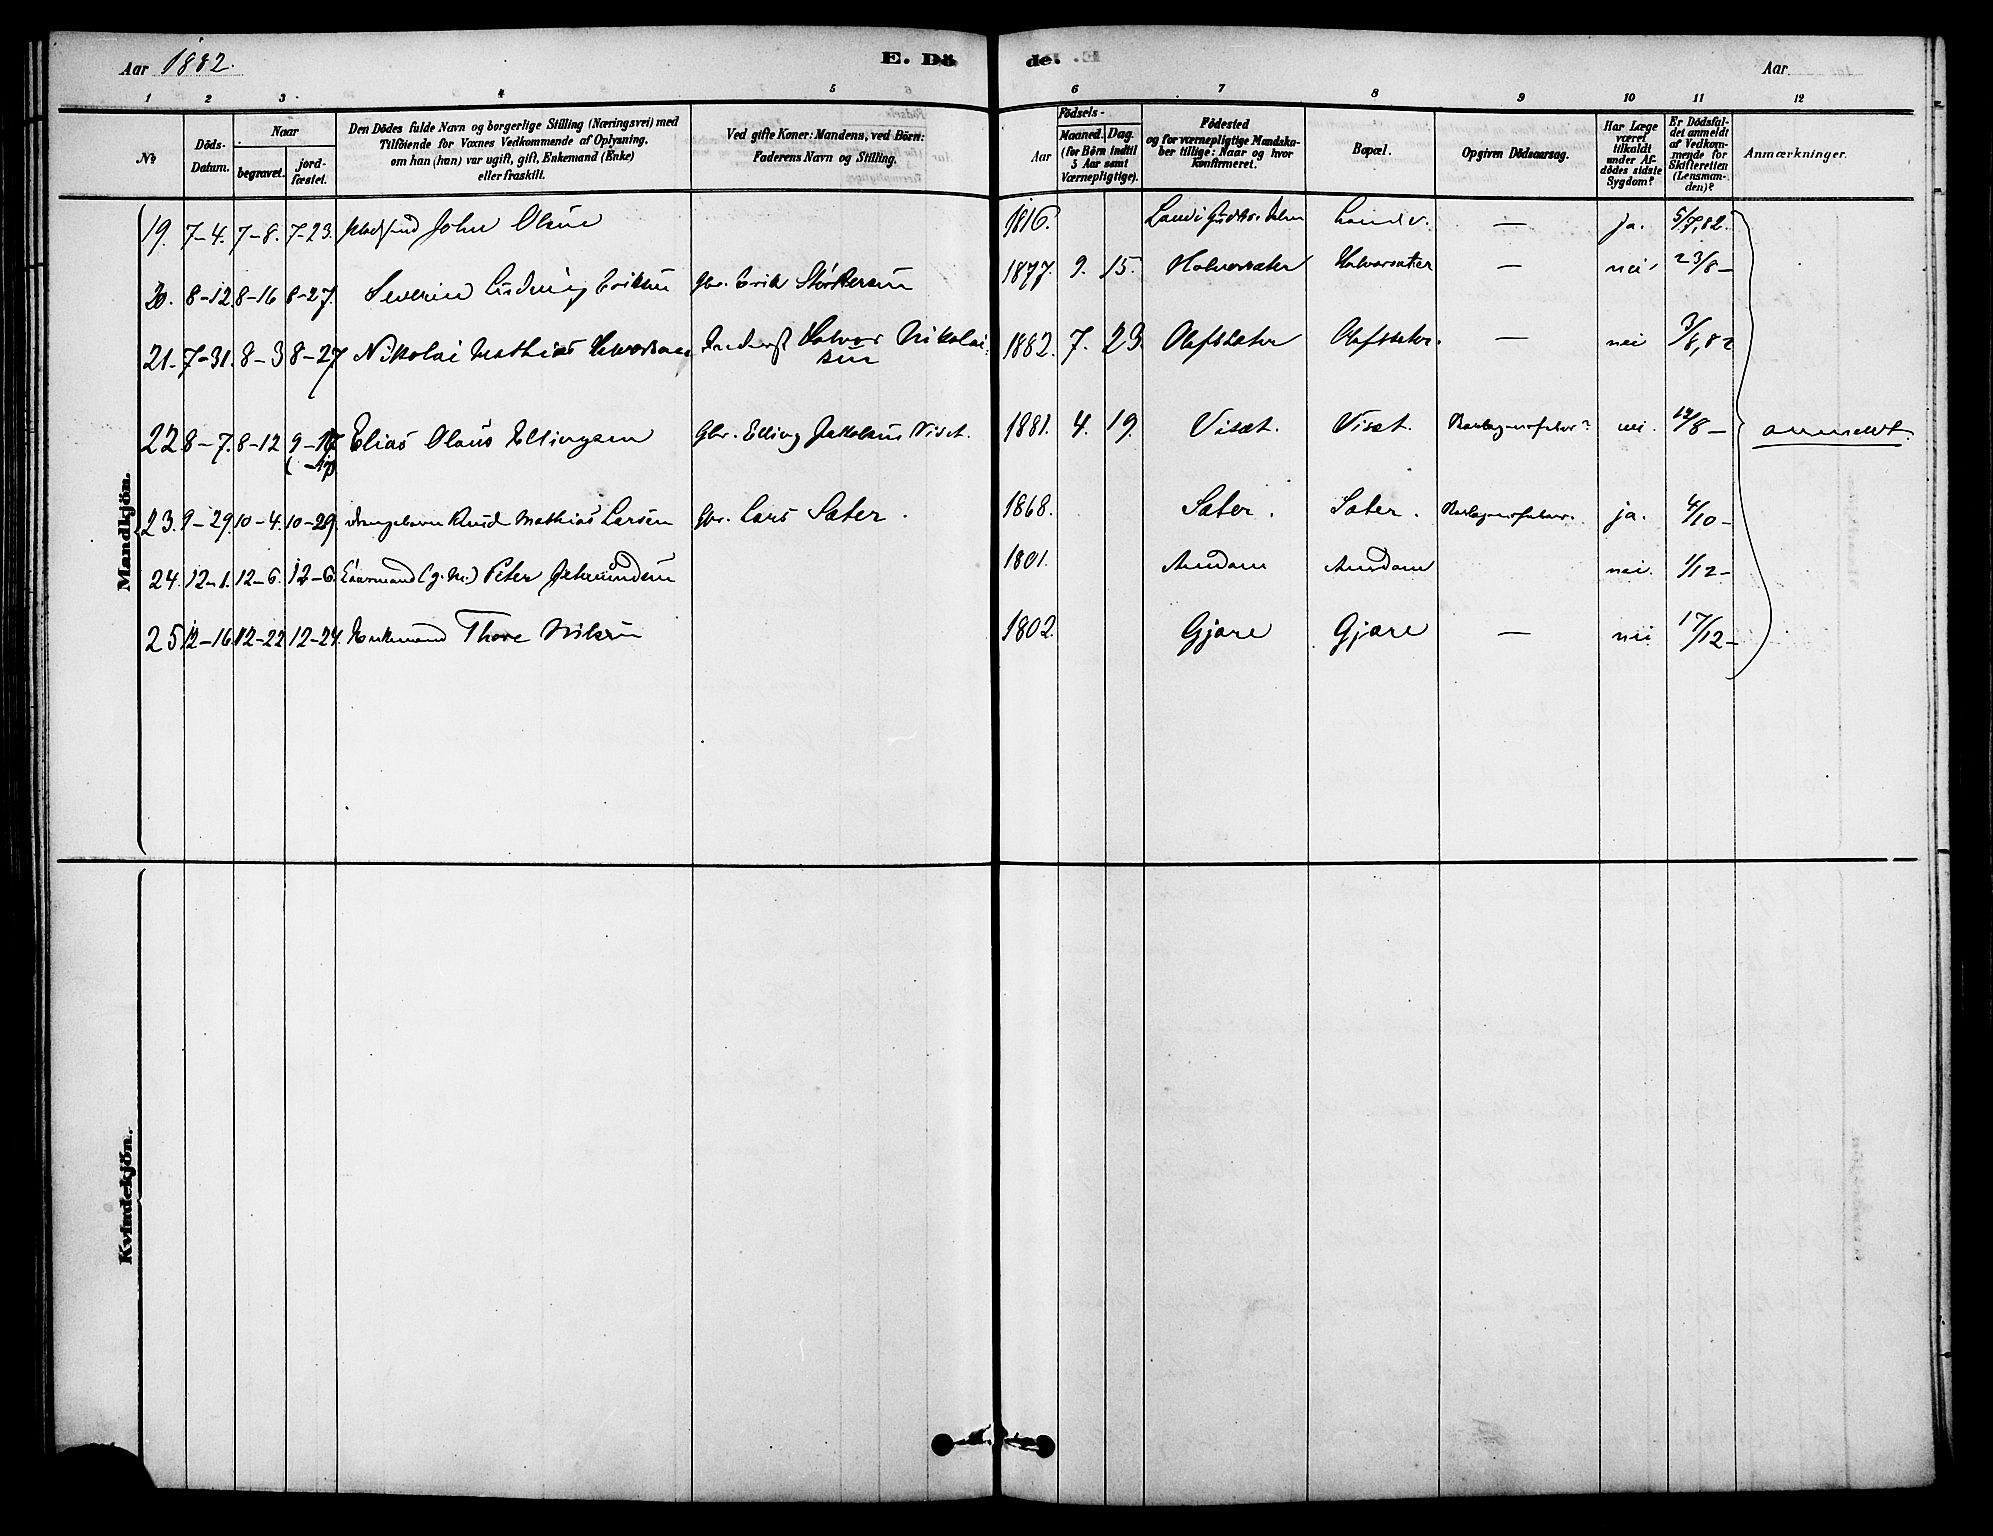 Aar 1882.
E. Dö de.
Aar
1 2 3 4 5 6 7 8 9 10 11 12
No
Döds-Datum.
Naar
begravet.
jord-fæstet.
Den Dödes fulde Navn og borgerlige Stilling (Næringsvei) med
Tilföiende for Voxnes Vedkommende af Oplysning,
om han (hun) var ugift, gift, Enkemand (Enke)
eller fraskilt.
Ved gifte Koner: Mandens, ved Börn:
Faderens Navn og Stilling.
Födsels-
Aar
Maaned. Dag.
(for Börn indtil
5 Aar samt
Værnepligtige).
Födested
og for værnepligtige Mandska-
ber tillige: Naar og hvor
konfirmeret.
Bopæl.
Opgiven Dödsaarsag.
Har Læge
været
tilkaldt
under Af-
dödes sidste
Sygdom?
Er Dödsfal-
det anmeldt
af Vedkom-
mende for
Skifteretten
(Lensman-
den)?
Anmærkninger.
Mandkjön.
19. 7-4. 7-8. 7-23. John Olsen 1816. — ja. 5/7,82.
20. 8-12 8-16 8-27. Severin Ludvig Eriksen Gbr. Erik Størkersen 1877. 9. 15. Halvorsæter Halvorsæter — nei. 23/8 -
21. 7-31. 8-3 8-27 Nikolai Mathias Halvorsen Inderst Halvor Nikolai-
sen 1882. 7. 23. Olafsæter Olafsæter. — nei 3/8,82
22. 8-7. 8-12 9-17 Elias Olaus Ellingsen Gbr. Elling Jakobsen Viset. 1881. 4. 19. Visæt. Visæt. nei. 12/8 - anmeldt.
23. 9-29. 10-4. 10-29. Knud Mathias Larsen Gbr. Lars Sæter. 1868. Sæter. Sæter. ja. 4/10 -
24. 12-1. 12-6. 12-6. Peter 1801. Aurdam Aurdam nei. 1/12 -
25. 12-16. 12-22 12-24. Enkemand Thore Nilsen 1802. Gjøre Gjøre — nei 17/12 -
Kvindekjön.